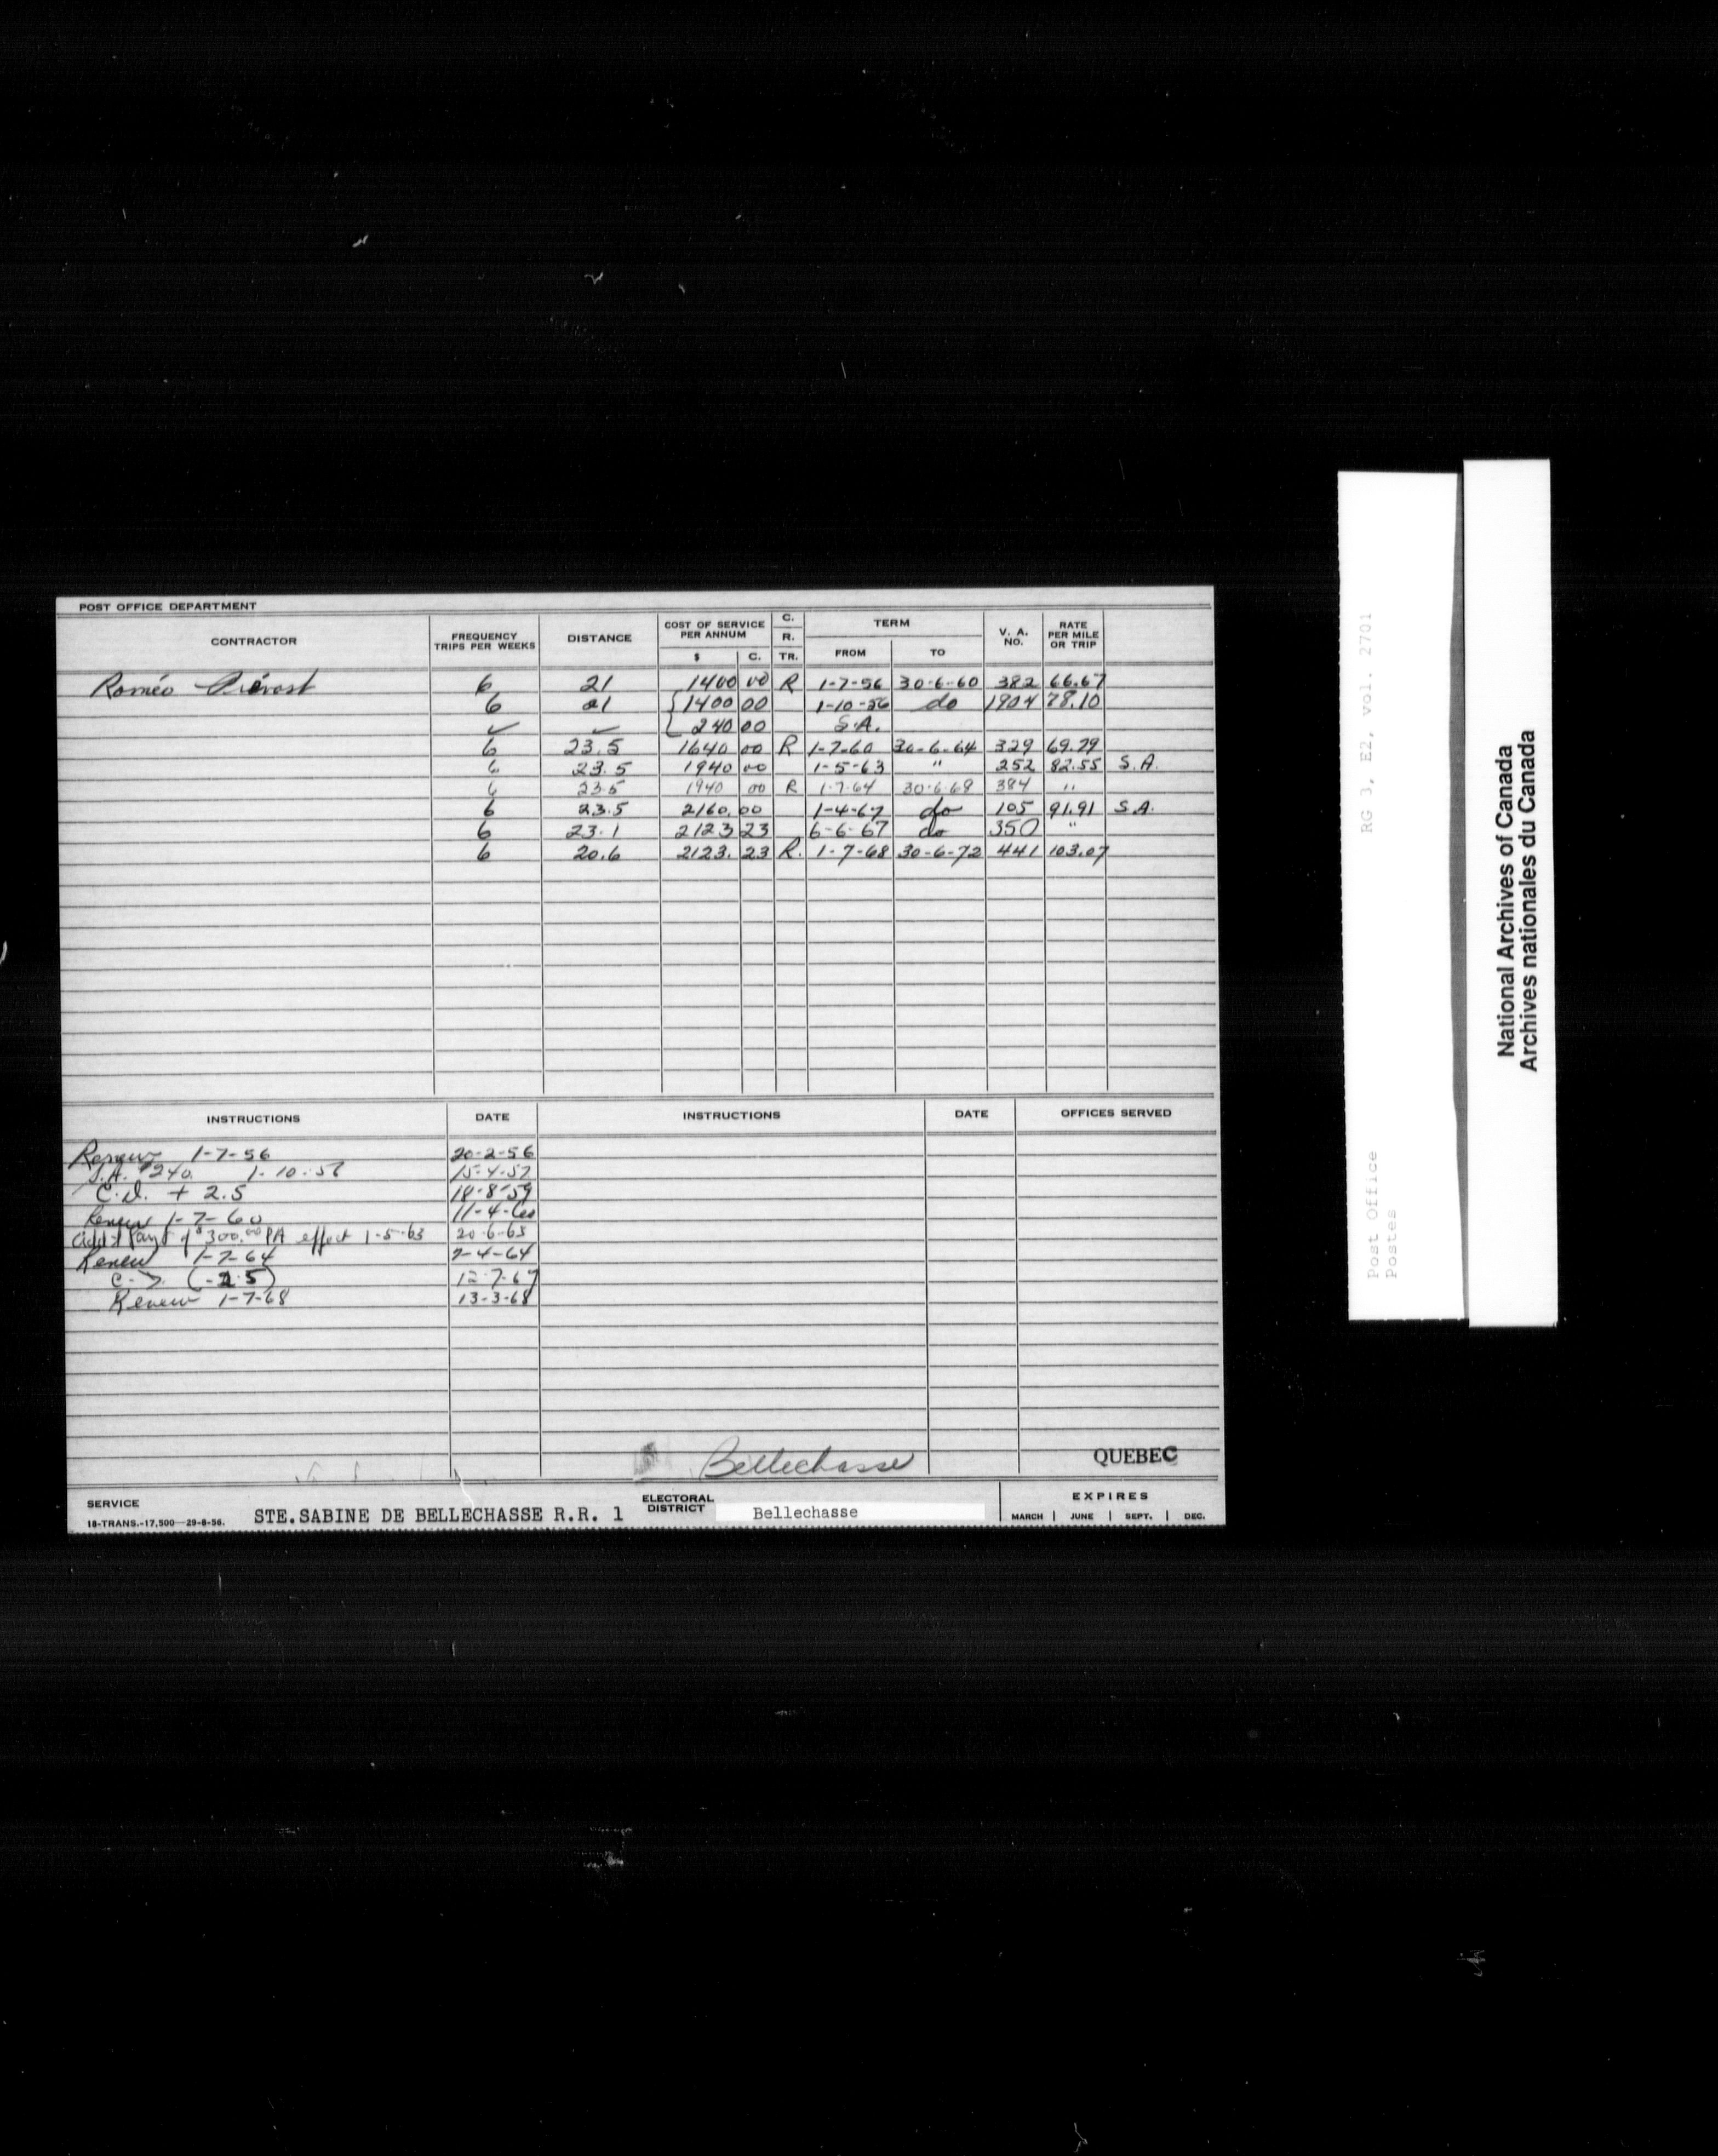 POST OFFICE DEPARTMENT
CONTRACTOR FREQUENCY TRIPS PER WEEKS DISTANCE COST OF SERVICE PER ANNUM $ C. C. R. TR. TERM FROM TO V. A. NO. RATE PER MILE OR TRIP
Roméo Prévost 6 21 1400 00 R 1-7-56 30-6-60 382 66.67
6 21 1400 00 1-10-56 do 1904 78.10
✓ ✓ 240 00 S.A.
6 23.5 1640 00 R 1-7-60 30-6-64 329 69.79
6 23.5 1940 00 1-5-63 " 252 82.55 S.A.
6 23.5 1940 00 R 1-7-64 30-6-68 384 "
6 23.5 2160.00 1-4-67 do 105 91.91 S.A.
6 23.1 2123 23 6-6-67 do 350 "
6 20.6 2123. 23 R. 1-7-68 30-6-72 441 103.07
INSTRUCTIONS DATE INSTRUCTIONS DATE OFFICES SERVED
Renew 1-7-56 20-2-56
S.A. $240. 1-10-56 15-4-57
C.d. + 2.5 18-8-59
Renew 1-7-60 11-4-60
Add'l Payt of $300.00 PA effect 1-5-63 20-6-63
Renew 1-7-64 7-4-64
(-2.5) 12-7-67
Renew 1-7-68 13-3-68
Bellechasse
QUEBEC
SERVICE STE.SABINE DE BELLECHASSE R.R. 1 ELECTORAL DISTRICT Bellechasse EXPIRES
18-TRANS.-17,500—29-8-56. MARCH | JUNE | SEPT. | DEC.
Post Office RG 3, E2, vol. 2701
Postes
National Archives of Canada
Archives nationales du Canada